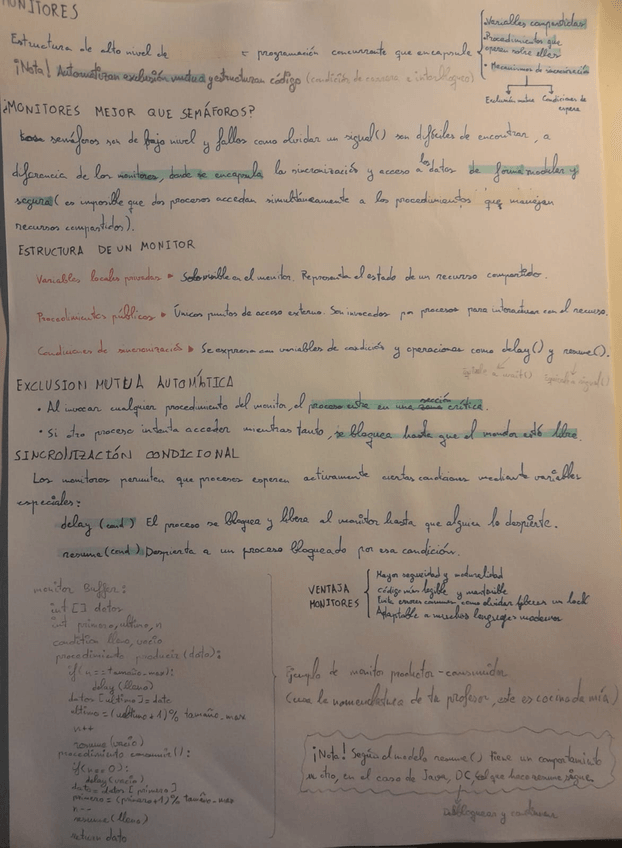 MONITORES
Estructura de alto nivel de = programación concurrente que encapsula
• Variables compartidas
• Procedimientos que
operan sobre ellas
• Mecanismos de sincronización
Exclusión mutua Condiciones de
espera
¡Nota! Automatizan exclusión mutua y estructuran código (condición de carrera e interbloqueo)
¿MONITORES MEJOR QUE SEMÁFOROS?
semáforos son de bajo nivel y fallos como olvidar un signal() son difíciles de encontrar, a
diferencia de los monitores, donde se encapsula la sincronización y acceso a los datos de forma modular y
segura (es imposible que dos procesos accedan simultáneamente a los procedimientos que manejan
recursos compartidos).
ESTRUCTURA DE UN MONITOR
Variables locales privadas ▸ Solo visible en el monitor. Representa el estado de un recurso compartido.
Procedimientos públicos ▸ Únicos puntos de acceso externo. Son invocados por procesos para interactuar con el recurso.
Condiciones de sincronización ▸ Se expresa con variables de condición y operaciones como delay() y resume().
wait() signal()
EXCLUSION MUTUA AUTOMÁTICA
• Al invocar cualquier procedimiento del monitor, el proceso entra en una sección crítica.
• Si otro proceso intenta acceder mientras tanto, se bloquea hasta que el monitor esté libre.
SINCRONIZACIÓN CONDICIONAL
Los monitores permiten que procesos esperen activamente ciertas condiciones mediante variables
especiales:
delay (cond) El proceso se bloquea y libera al monitor hasta que alguien lo despierte.
resume (cond) Despierta a un proceso bloqueado por esa condición.
VENTAJA
MONITORES
Mayor seguridad y modularidad
Código más legible y mantenible
Evita errores comunes como olvidar liberar un lock
Adaptable a muchos lenguajes modernos
monitor Buffer:
int [] datos
int primero, ultimo, n
condition lleno, vacio
procedimiento producir (dato):
if(n == tamaño_max):
delay (lleno)
datos [ultimo] = dato
ultimo = (ultimo + 1) % tamaño_max
n++
resume (vacio)
procedimiento consumir ():
if(n == 0):
delay (vacio)
dato = datos [primero]
primero = (primero + 1) % tamaño_max
n--
resume (lleno)
return dato
Ejemplo de monitor productor-consumidor
(usa la nomenclatura de tu profesor, este es cocina da mía)
¡Nota! Según el modelo resume() tiene un comportamiento
u otro, en el caso de Java, DC, el que hace resume sigue,
desbloqueas y continuar